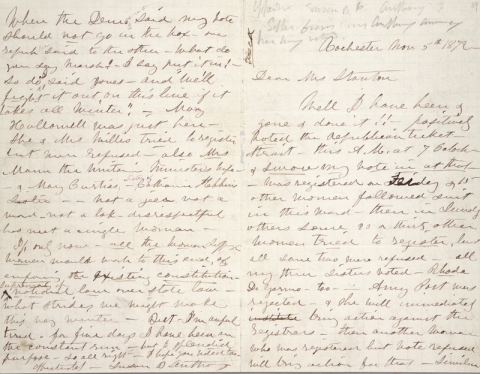 Rochester Nov 5th 1872
Dear Mrs Stanton
Well I have been &
gone & done it!! - positively
voted the Republican ticket -
strait - this A.M. at 7 Oclock -
& swore my vote in at that -
- was registered on Friday & 15
other women followed suit
in this ward - then in Sundry
others some 20 or thirty other
women tried to register, but
all save two were refused - all
my three sisters voted - Rhoda
De Garmo too - Amy Post was
rejected - & she will immediately
bring action against the
registrars - then another woman
who was registered but vote refused
will bring action for that -
When the Demo said my vote
should not go in the box - one
repub said to the other - What do
you say Marsh? - I say put it in! -
So do I, said Jones - and We'll
fight it out on this line if it
takes all Winter" - Mary
Hallowell was just here -
She & Mrs Willis tried to register
but were refused - also Mrs
Mann the Unita Minister's wife -
& Mary Curtis - Catharine
Sister - - not a jeer not a
word - not a look - disrespectful
has met a single woman -
If only now - all the Woman Suff
Women would work to this end, of
enforcing the existing constitution -
supremacy of national law over state law -
what strides we might make
this very winter - But - I'm awful
tired - for five days I have been on
the constant run - but to splendid
purpose - So all right - I hope you voted too
affectionately - Susan B. Anthony